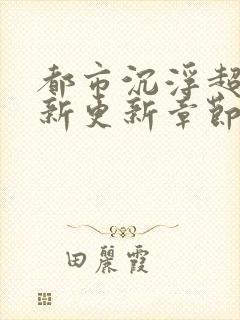 都市沉浮超
新更新章節
田麗霞